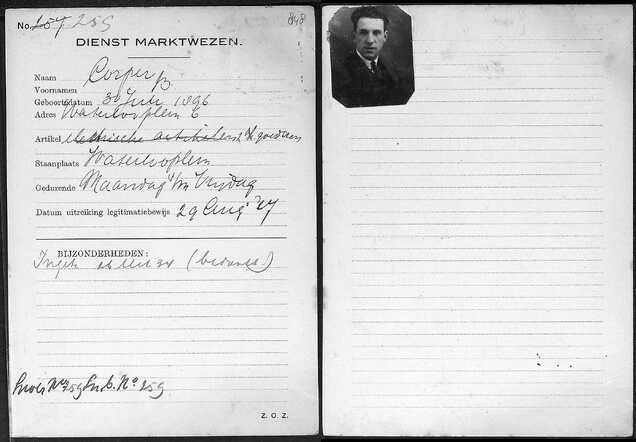 No. 157 259
848
DIENST MARKTWEZEN.
Naam Corper
Voornamen
Geboortedatum 30 Juli 1896
Adres Waterlooplein 6
Artikel electrische artikelen goederen
Staanplaats Waterlooplein
Gedurende Maandag t/m Vrijdag
Datum uitreiking legitimatiebewijs 29 Aug '27
BIJZONDERHEDEN:
No 259 No 259
Z. O. Z.